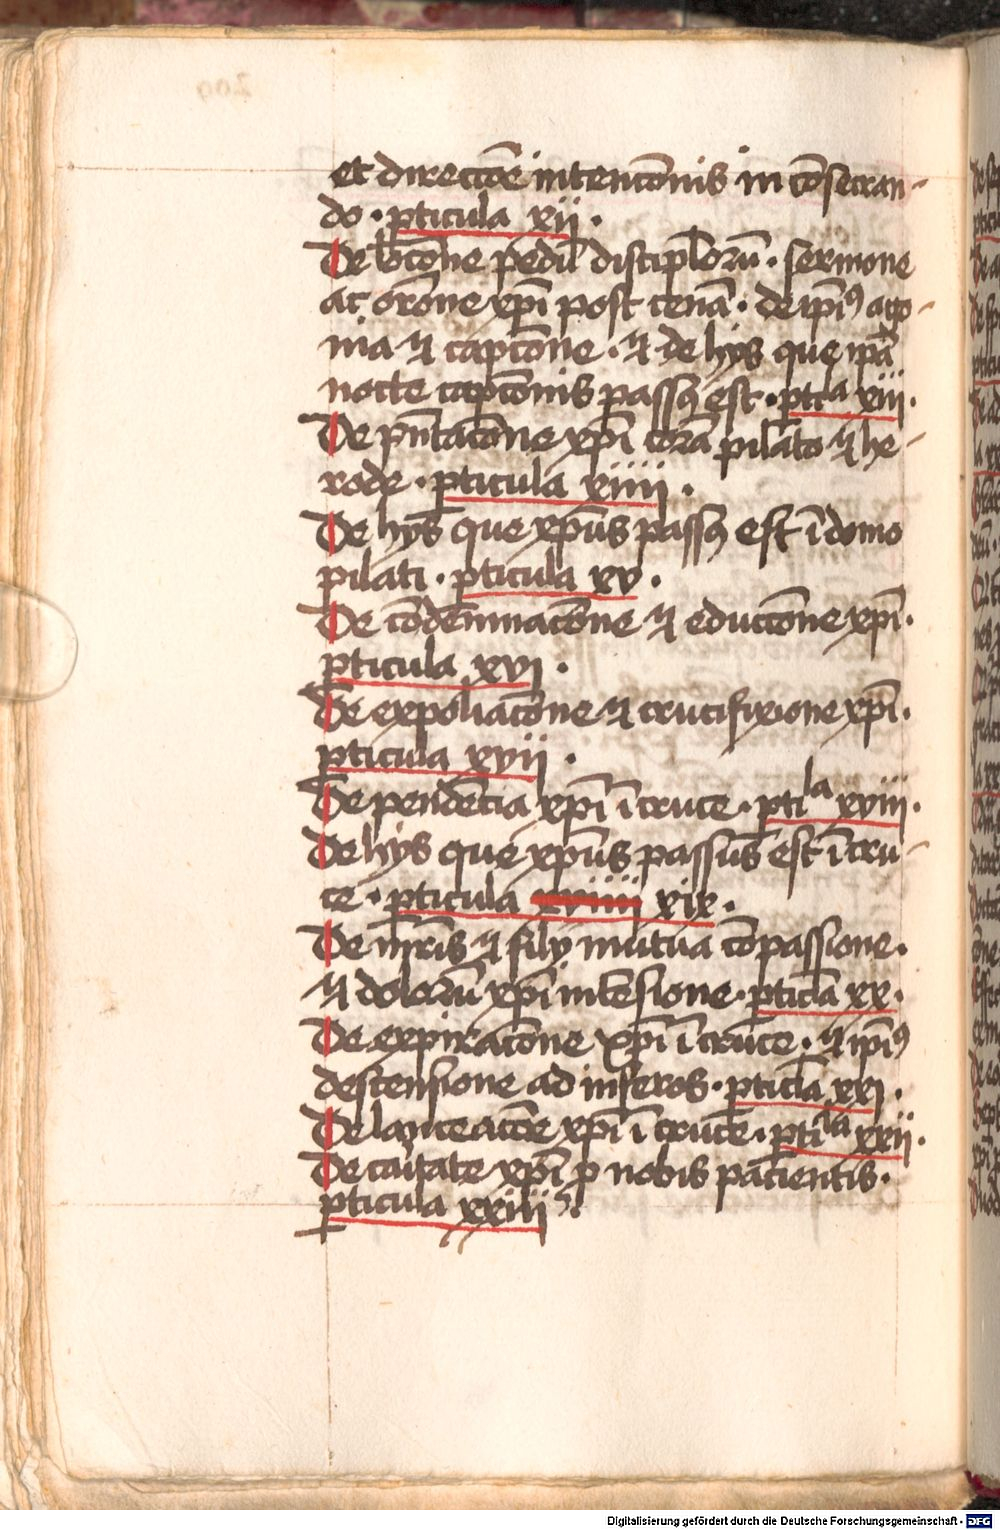 et directōe intencōnis in cōsecran-
do · pticula xij ·
De locōne pedū discipłorū · sermone
ac orōne xpī post cenā · de ipiꝰ ago-
nia ⁊ capcōne · ⁊ de hys que ipā
nocte capcōnis passꝰ est · ptcla xiij ·
De pn̄tacōne xpī corā pilato ⁊ he-
rode · pticula xiiij ·
De hys que xpūs passꝰ est ī domo
pilati · pticula xv ·
De cōdēmnacōne ⁊ educcōne xpī ·
pticula xvj ·
De expoliacōne ⁊ crucifixione xpī ·
pticula xvij ·
De pendēcia xpī ī cruce · ptila xviij ·
De hys que xpūs passus est ī cru-
ce · pticula xviiij xix ·
De mr̄is ⁊ filij mutua cōpassione ·
⁊ dolorū xpī incēsione · pticla xx ·
De expiracōne xpī ī cruce · ⁊ ipiꝰ
descensione ad inferos · pticla xxj ·
De lanceacōe xpī ī cruce · ptila xxij ·
De caritate xpī p nobis pacientis ·
pticula xxiij ·
209
Digitalisierung gefördert durch die Deutsche Forschungsgemeinschaft - DFG